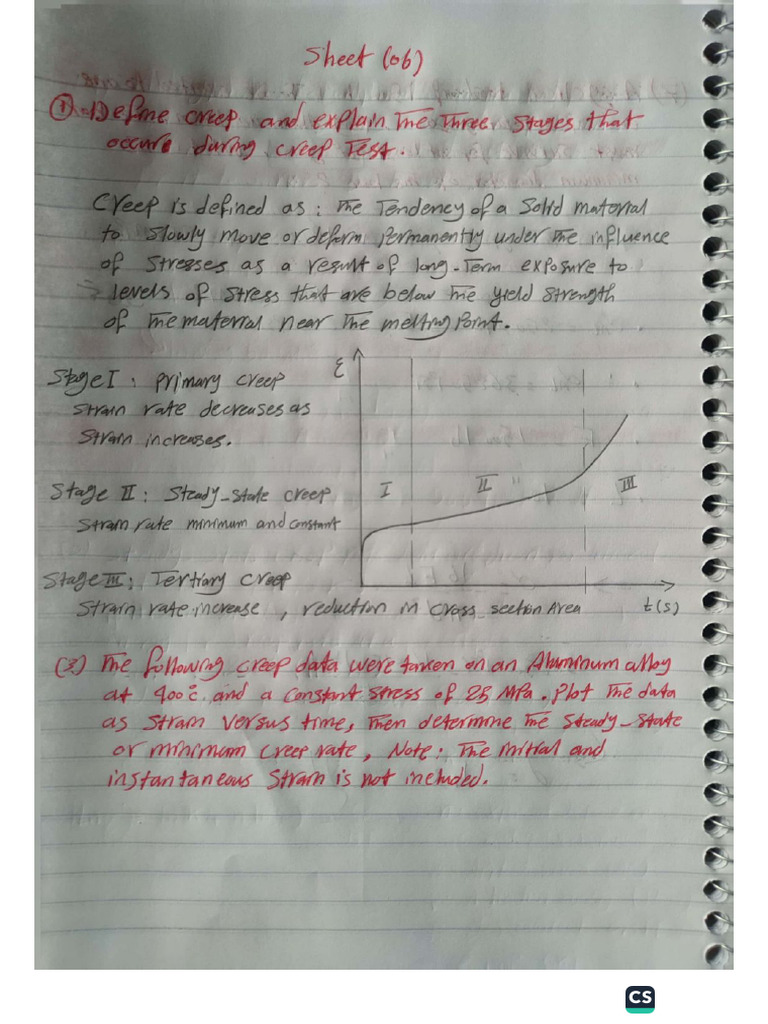 Sheet (06)
① Define creep and explain The Three Stages that
occurs during creep Test.
Creep is defined as: The Tendency of a Solid material
to Slowly move or deform permanently under The influence
of Stresses as a result of long-Term exposure to
levels of Stress that are below The yield Strength
of The material near The melting Point.
Stage I : primary creep
Strain rate decreases as
Strain increases.
Stage II : Steady-State creep
Strain rate minimum and constant
Stage III : Tertiary creep
Strain rate increase, reduction in cross-section Area
ξ
I
II
III
t(s)
(3) The following creep data were taken on an Aluminum alloy
at 400°c and a constant stress of 25 MPa. Plot The data
as Strain versus time, Then determine The Steady-State
or minimum creep rate, Note: The initial and
instantaneous Strain is not included.
CS